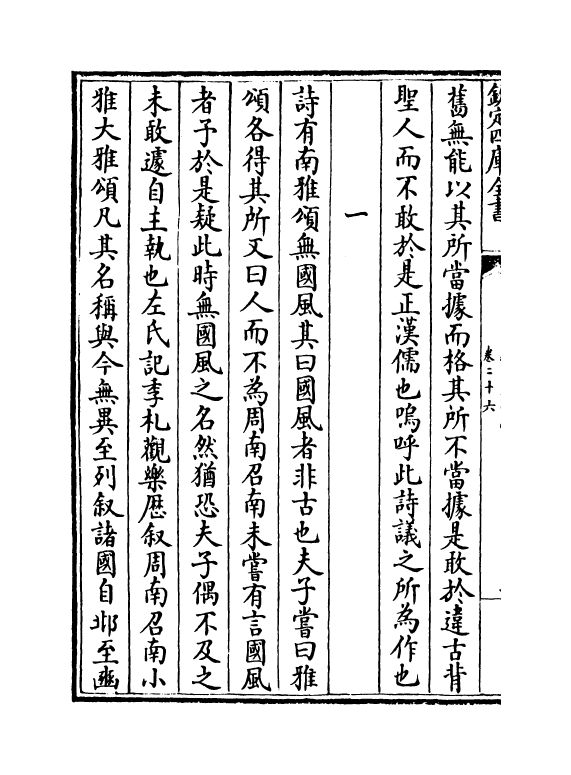 欽定四庫全書
卷二十六
舊無能以其所當據而格其所不當據是敢於違古背
聖人而不敢於是正漢儒也嗚呼此詩議之所為作也
一
詩有南雅頌無國風其曰國風者非古也夫子嘗曰雅
頌各得其所又曰人而不為周南召南未嘗有言國風
者予於是疑此時無國風之名然猶恐夫子偶不及之
未敢遽自主執也左氏記季札觀樂歴叙周南召南小
雅大雅頌凡其名稱與今無異至列叙諸國自邶至豳